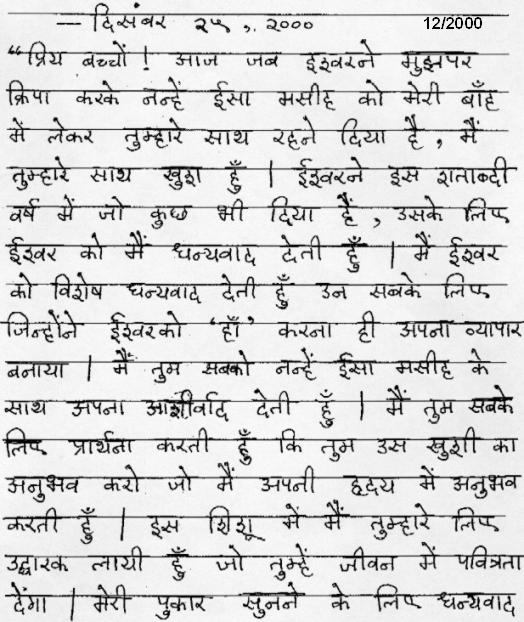 — दिसंबर २५, २००० 12/2000
“प्रिय बच्चों ! आज जब ईश्वरने मुझपर
क्रिपा करके नन्हें ईसा मसीह को मेरी बाँह
में लेकर तुम्हारे साथ रहने दिया है, मैं
तुम्हारे साथ खुश हूँ | ईश्वरने इस शताब्दी
वर्ष में जो कुछ भी दिया हैं, उसके लिए
ईश्वर को मैं धन्यवाद देती हूँ | मैं ईश्वर
को विशेष धन्यवाद देती हूँ उन सबके लिए
जिन्होंने ईश्वरको ‘हाँ’ करना ही अपना व्यापार
बनाया | मैं तुम सबको नन्हें ईसा मसीह के
साथ अपना आशीर्वाद देती हूँ | मैं तुम सबके
लिए प्रार्थना करती हूँ कि तुम उस खुशी का
अनुभव करो जो मैं अपनी हृदय में अनुभव
करती हूँ | इस शिशू में मैं तुम्हारे लिए
उद्धारक लायी हूँ जो तुम्हें जीवन में पवित्रता
देंगा | मेरी पुकार सुनने के लिए धन्यवाद